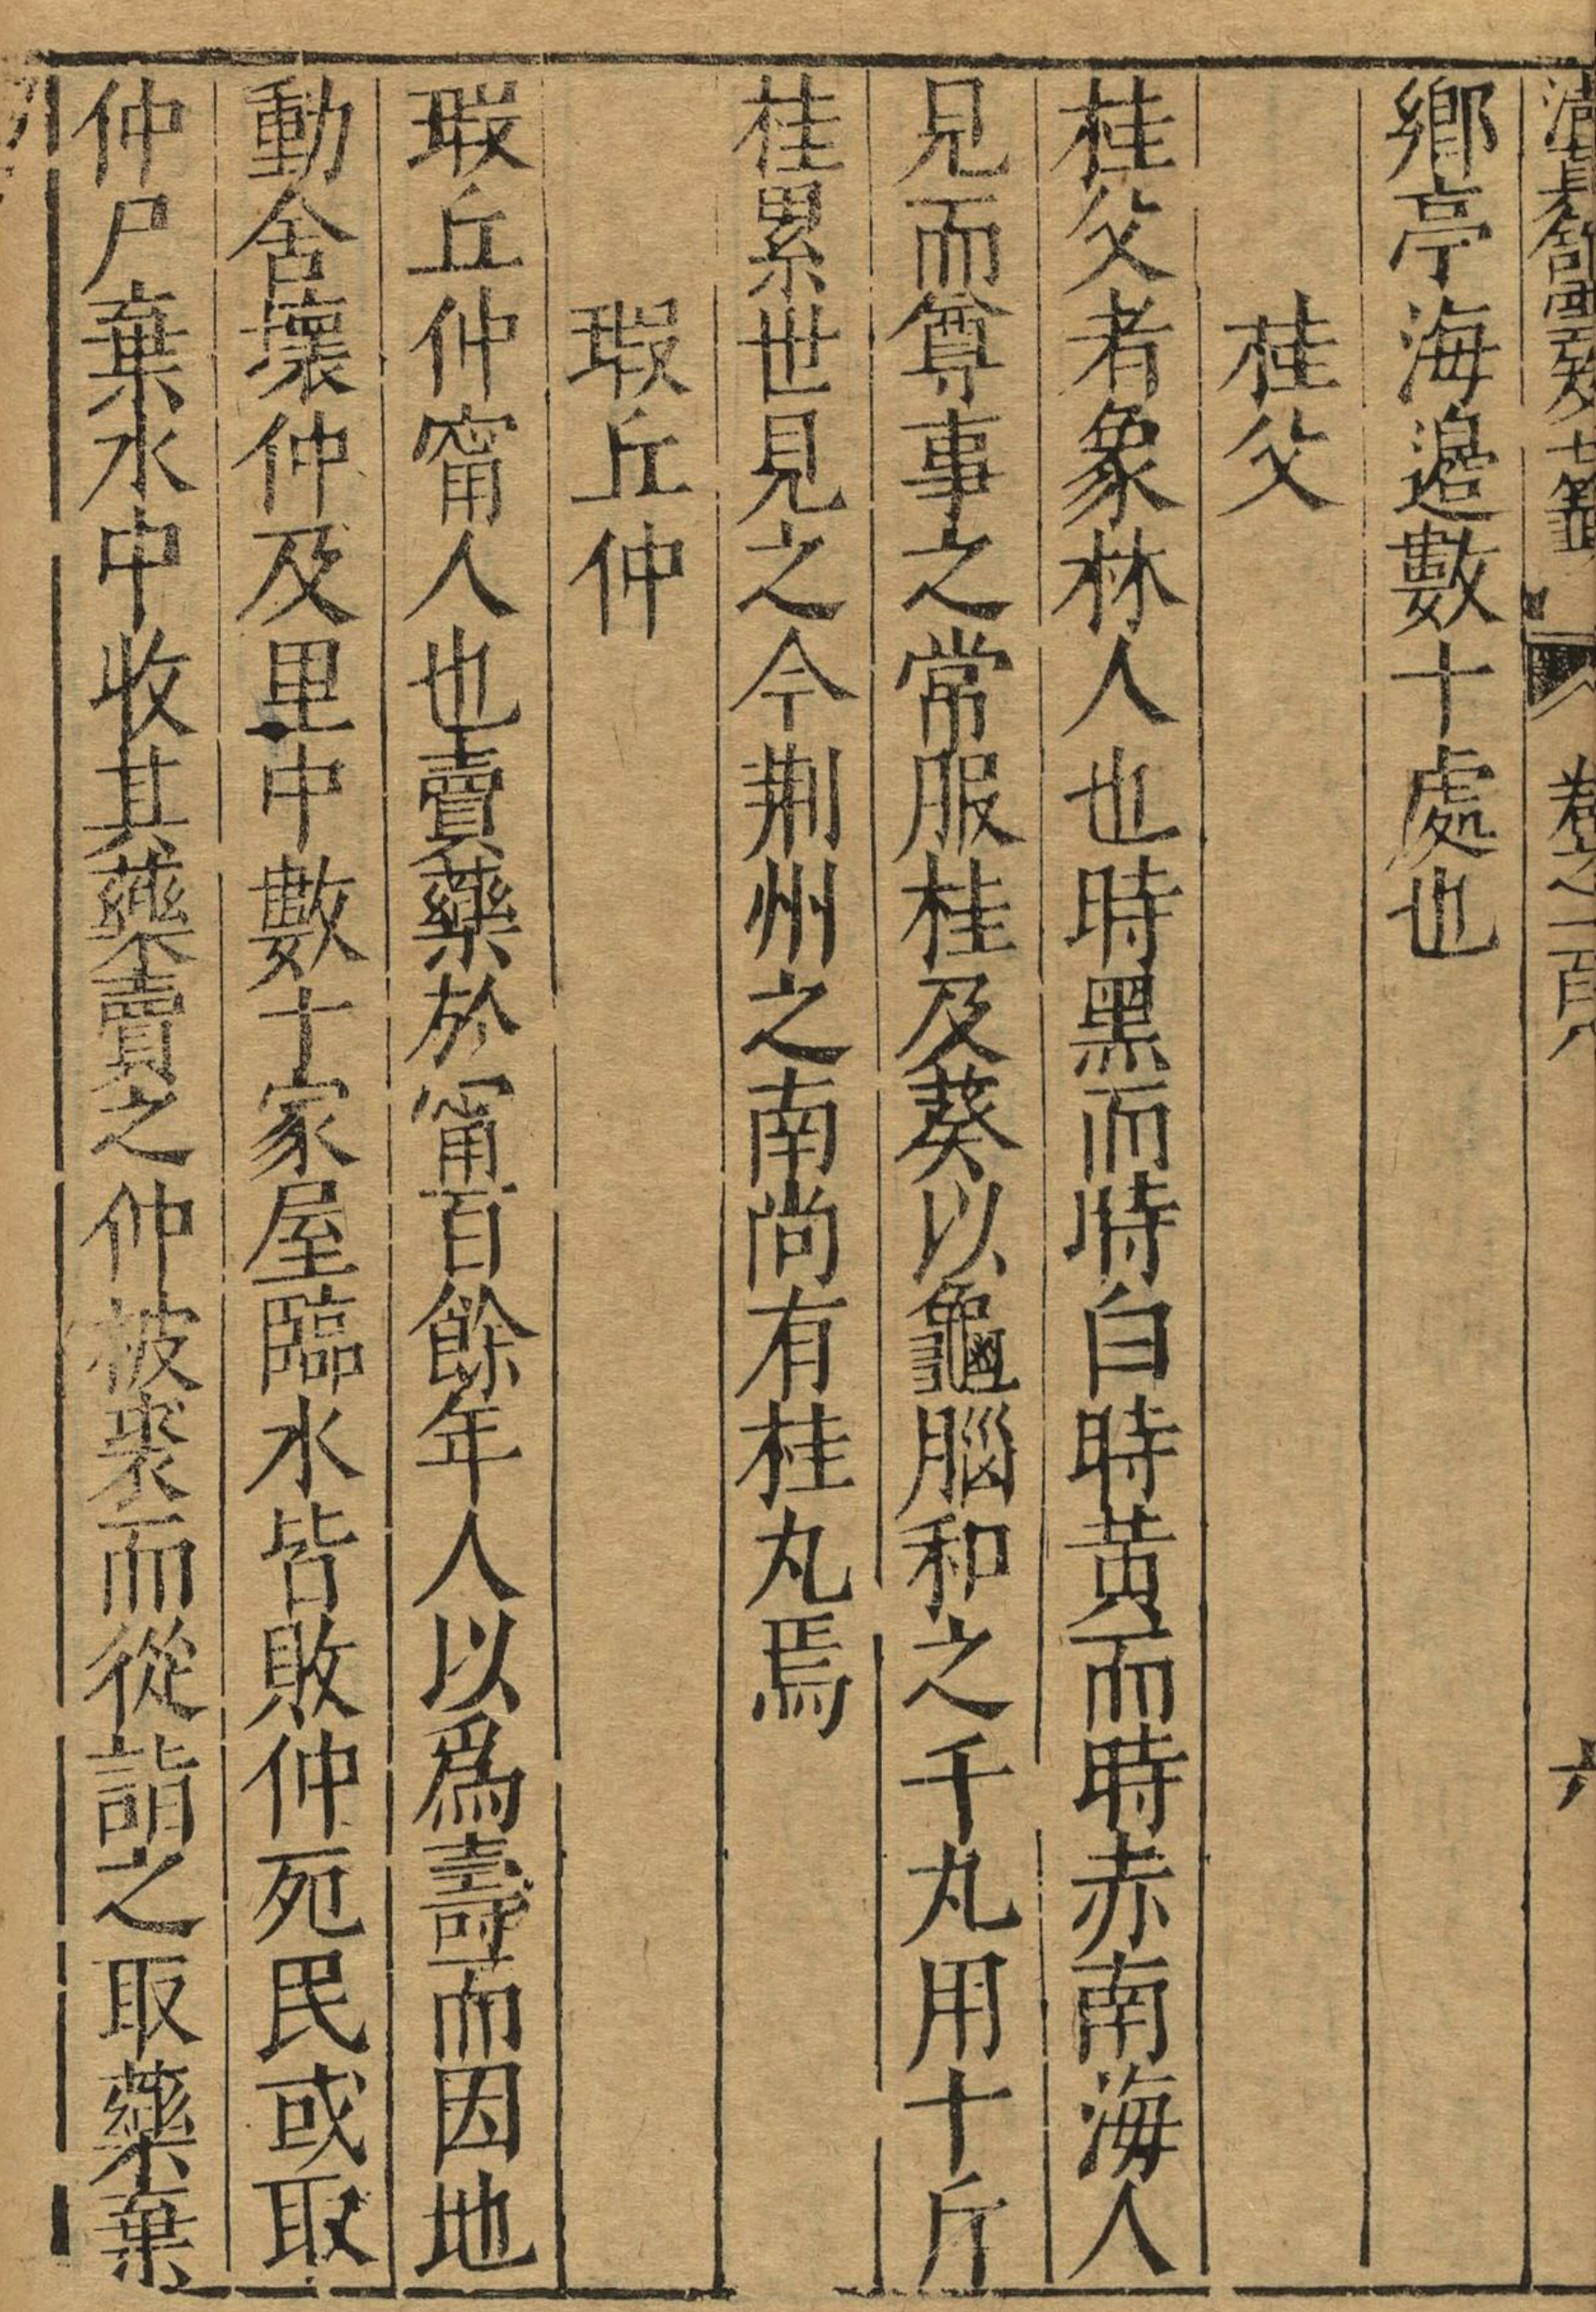 卷之一百八
六
鄉亭海邉數十處也
桂父
桂父者象林人也時黑而時白時黃而時赤南海人
見而尊事之常服桂及葵以龜腦和之千丸用十斤
桂累世見之今荆州之南尚有桂丸焉
瑕丘仲
瑕丘仲甯人也賣藥於甯百餘年人以爲壽而因地
動舍壞仲及里中數十家屋臨水皆敗仲死民或取
仲尸棄水中收其藥賣之仲被裘而從詣之取藥棄